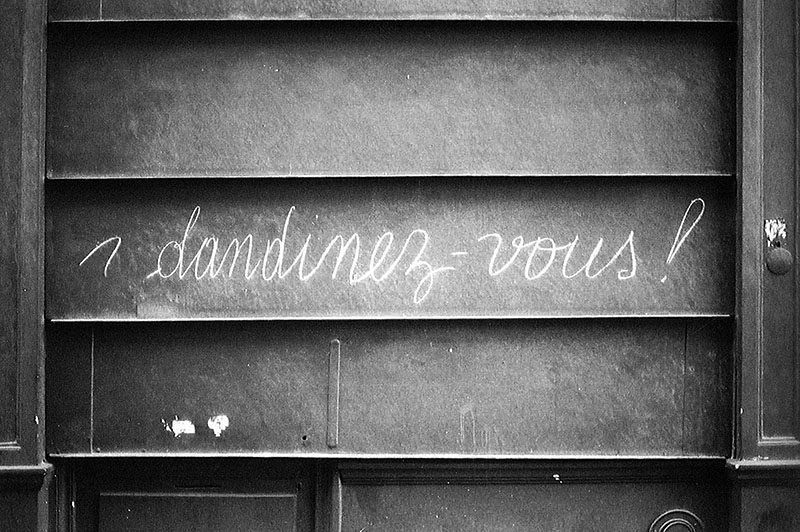 1 dandinez-vous!